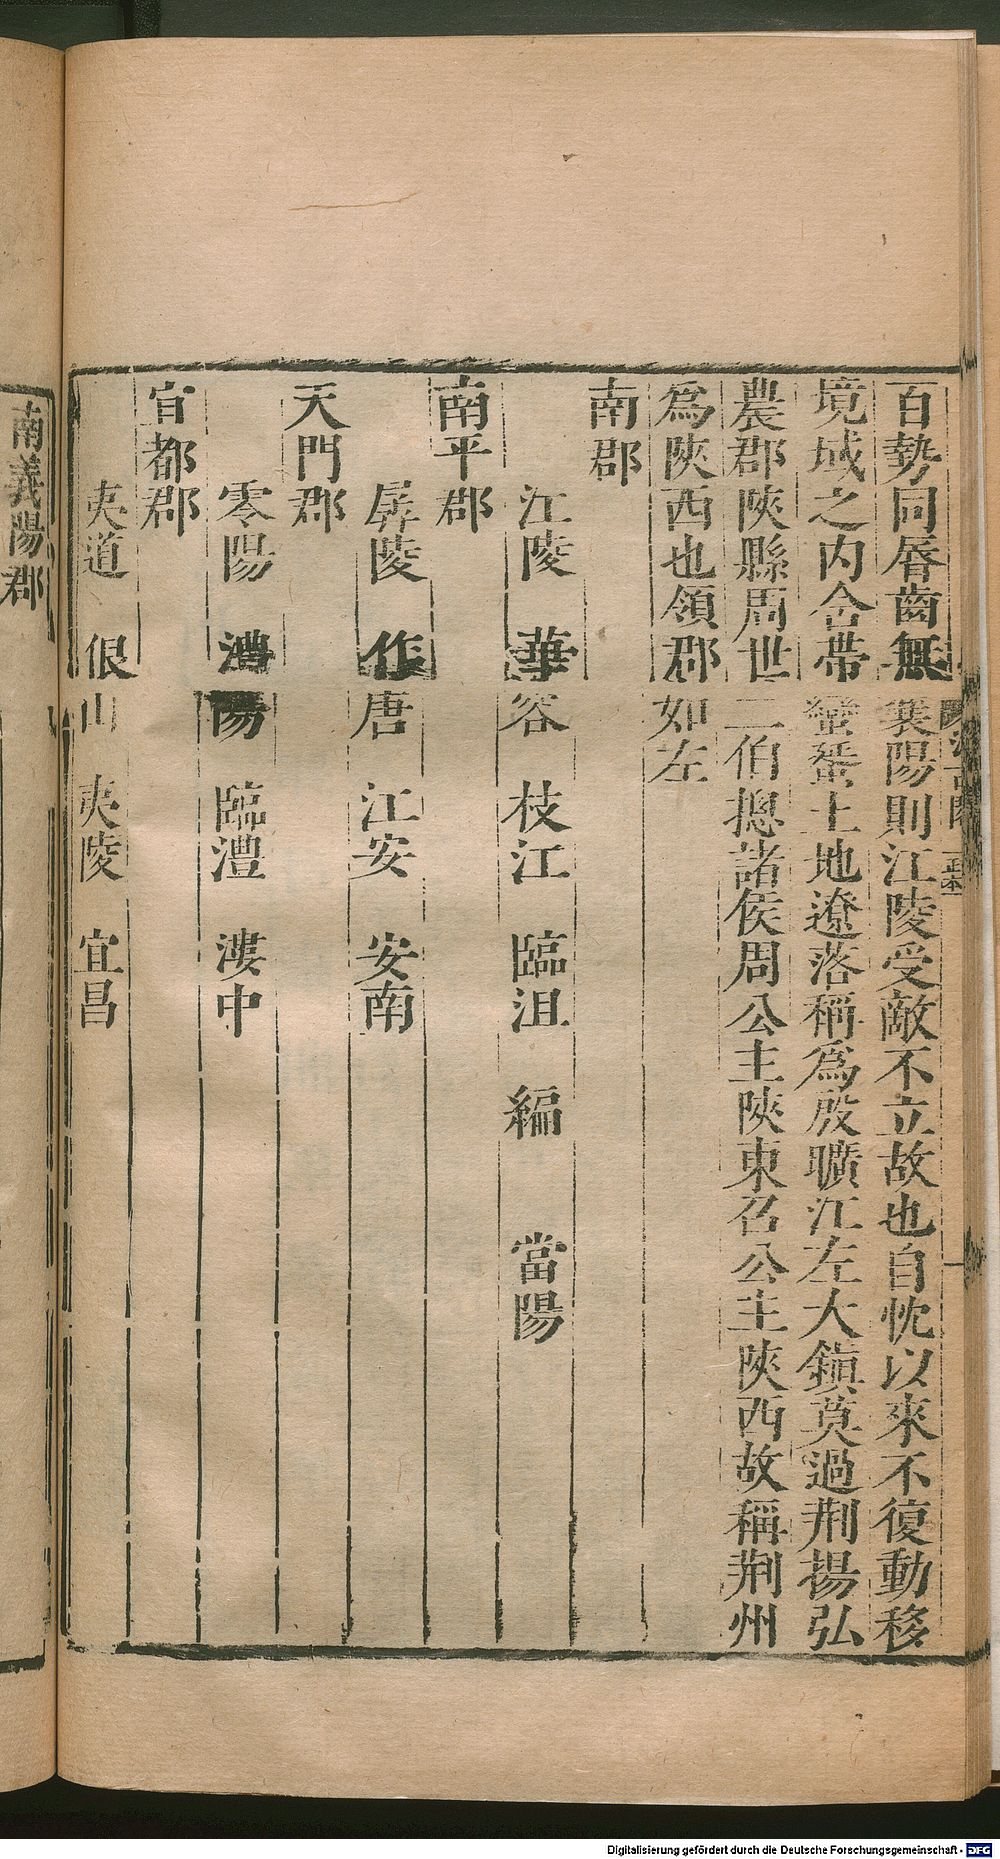 百勢同脣齒無襄陽則江陵受敵不立故也自忱以來不復動移
境域之内含帶蠻蜑土地遼落稱爲殷曠江左大鎮莫過荆揚弘
農郡陜縣周世二伯摠諸侯周公主陜東召公主陜西故稱荆州
爲陜西也領郡如左
南郡
江陵 華容 枝江 臨沮 編 當陽
南平郡
孱陵 作唐 江安 安南
天門郡
零陽 澧陽 臨澧 漊中
宜都郡
夷道 佷山 夷陵 宜昌
南義陽郡
汲古閣
Digitalisierung gefördert durch die Deutsche Forschungsgemeinschaft - DFG